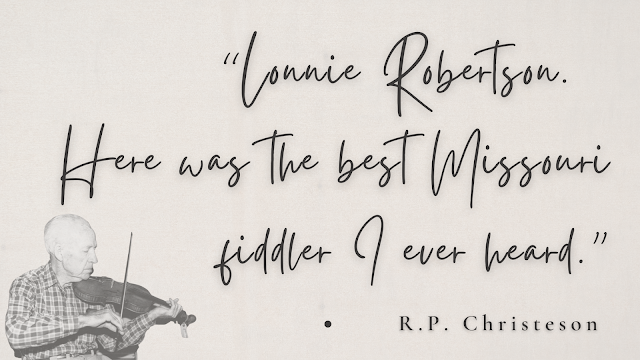 “Lonnie Robertson.
Here was the best Missouri
fiddler I ever heard.”
• R.P. Christeson